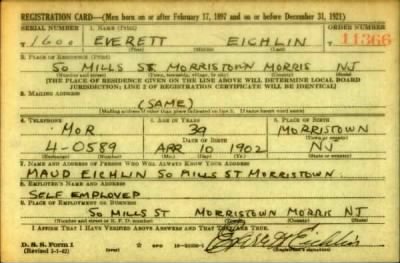 REGISTRATION CARD—(Men born on or after February 17, 1897 and on or before December 31, 1921)
SERIAL NUMBER 1. NAME (Print) ORDER NUMBER
160 EVERETT EICHLIN 11366
(First) (Middle) (Last)
2. PLACE OF RESIDENCE (Print)
50 MILLS ST. MORRISTOWN MORRIS NJ
(Number and street) (Town, township, village, or city) (County) (State)
[THE PLACE OF RESIDENCE GIVEN ON THE LINE ABOVE WILL DETERMINE LOCAL BOARD
JURISDICTION; LINE 2 OF REGISTRATION CERTIFICATE WILL BE IDENTICAL]
3. MAILING ADDRESS
(SAME)
[Mailing address if other than place indicated on line 2. If same insert word same]
4. TELEPHONE 5. AGE IN YEARS 6. PLACE OF BIRTH
MOR 39 MORRISTOWN
DATE OF BIRTH (Town or county)
4-0589 APR 10 1902 NJ
(Number) (Mo.) (Day) (Yr.) (State or country)
7. NAME AND ADDRESS OF PERSON WHO WILL ALWAYS KNOW YOUR ADDRESS
MAUD EICHLIN 50 MILLS ST MORRISTOWN
8. EMPLOYER'S NAME AND ADDRESS
SELF EMPLOYED
9. PLACE OF EMPLOYMENT OR BUSINESS
50 MILLS ST MORRISTOWN MORRIS NJ
(Number and street or R. F. D. number) (Town) (County) (State)
I AFFIRM THAT I HAVE VERIFIED ABOVE ANSWERS AND THAT THEY ARE TRUE.
D. S. S. Form 1
Eichlin